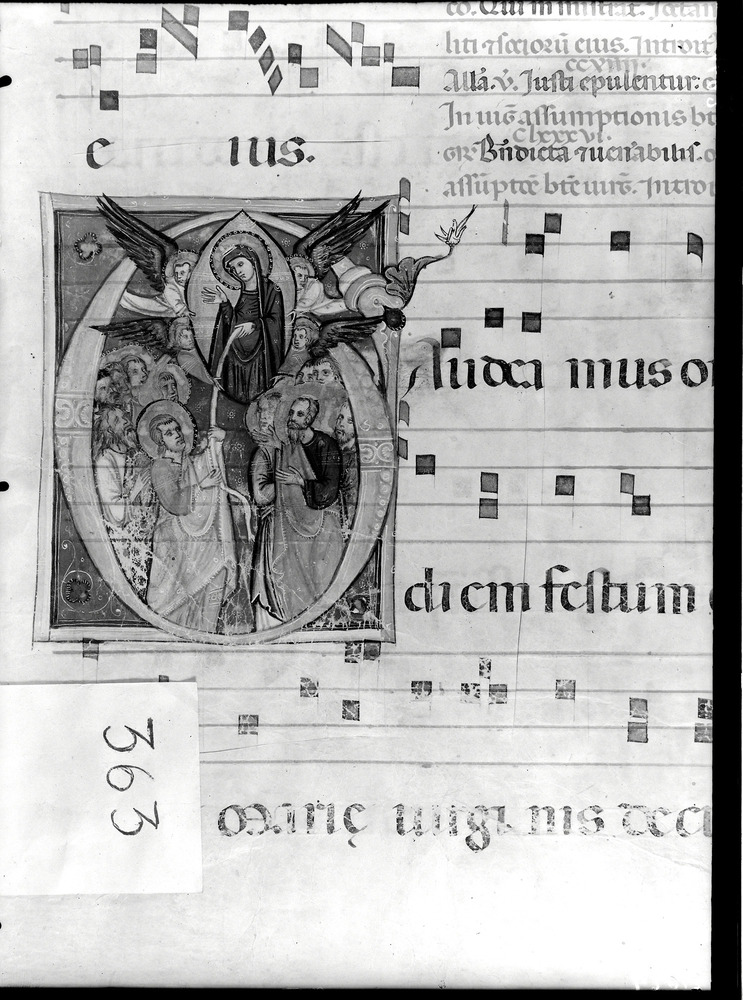 co. Qui mi ministrat.
liti ⁊ socioru eius. Introit
ccxviiii.
Alla. v. Iusti epulentur.
In uig assumptionis bt
clxxxvi.
gr Bndicta ⁊ uenerabilis.
assupto bte uirg. Intro
e ius.
Audea mus o
diem festum
marie uirgi nis de cu
363